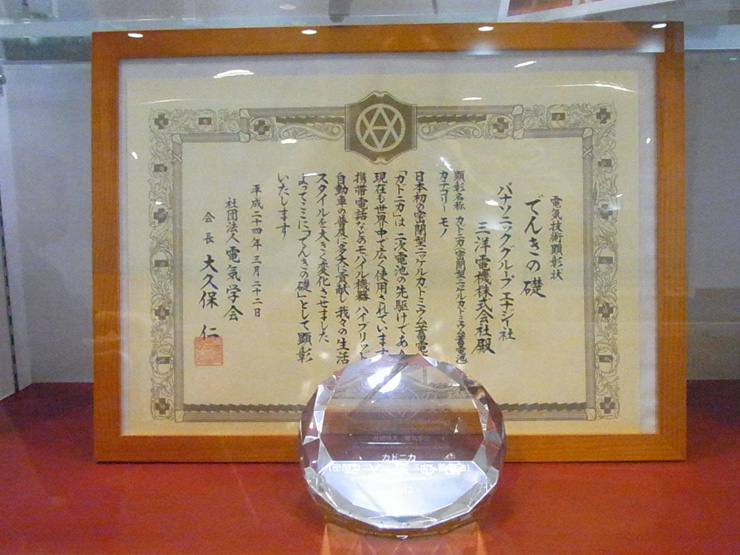 電気技術顕彰状
でんきの礎
パナソニックグループ エナジー社
三洋電機株式会社殿
顕彰名称 カドニカ(密閉型ニッケルカドミウム蓄電池)
カテゴリー モノ
日本初の密閉型ニッケルカドミウム蓄電池
「カドニカ」は 二次電池の先駆けであり
現在も世界中で広く使用されています
携帯電話などのモバイル機器 ハイブリッド
自動車の普及に多大に貢献し 我々の生活
スタイルを大きく変化させました
よってここに「でんきの礎」として顕彰
いたします
平成二十四年三月二十二日
社団法人 電気学会
会長 大久保 仁
カドニカ